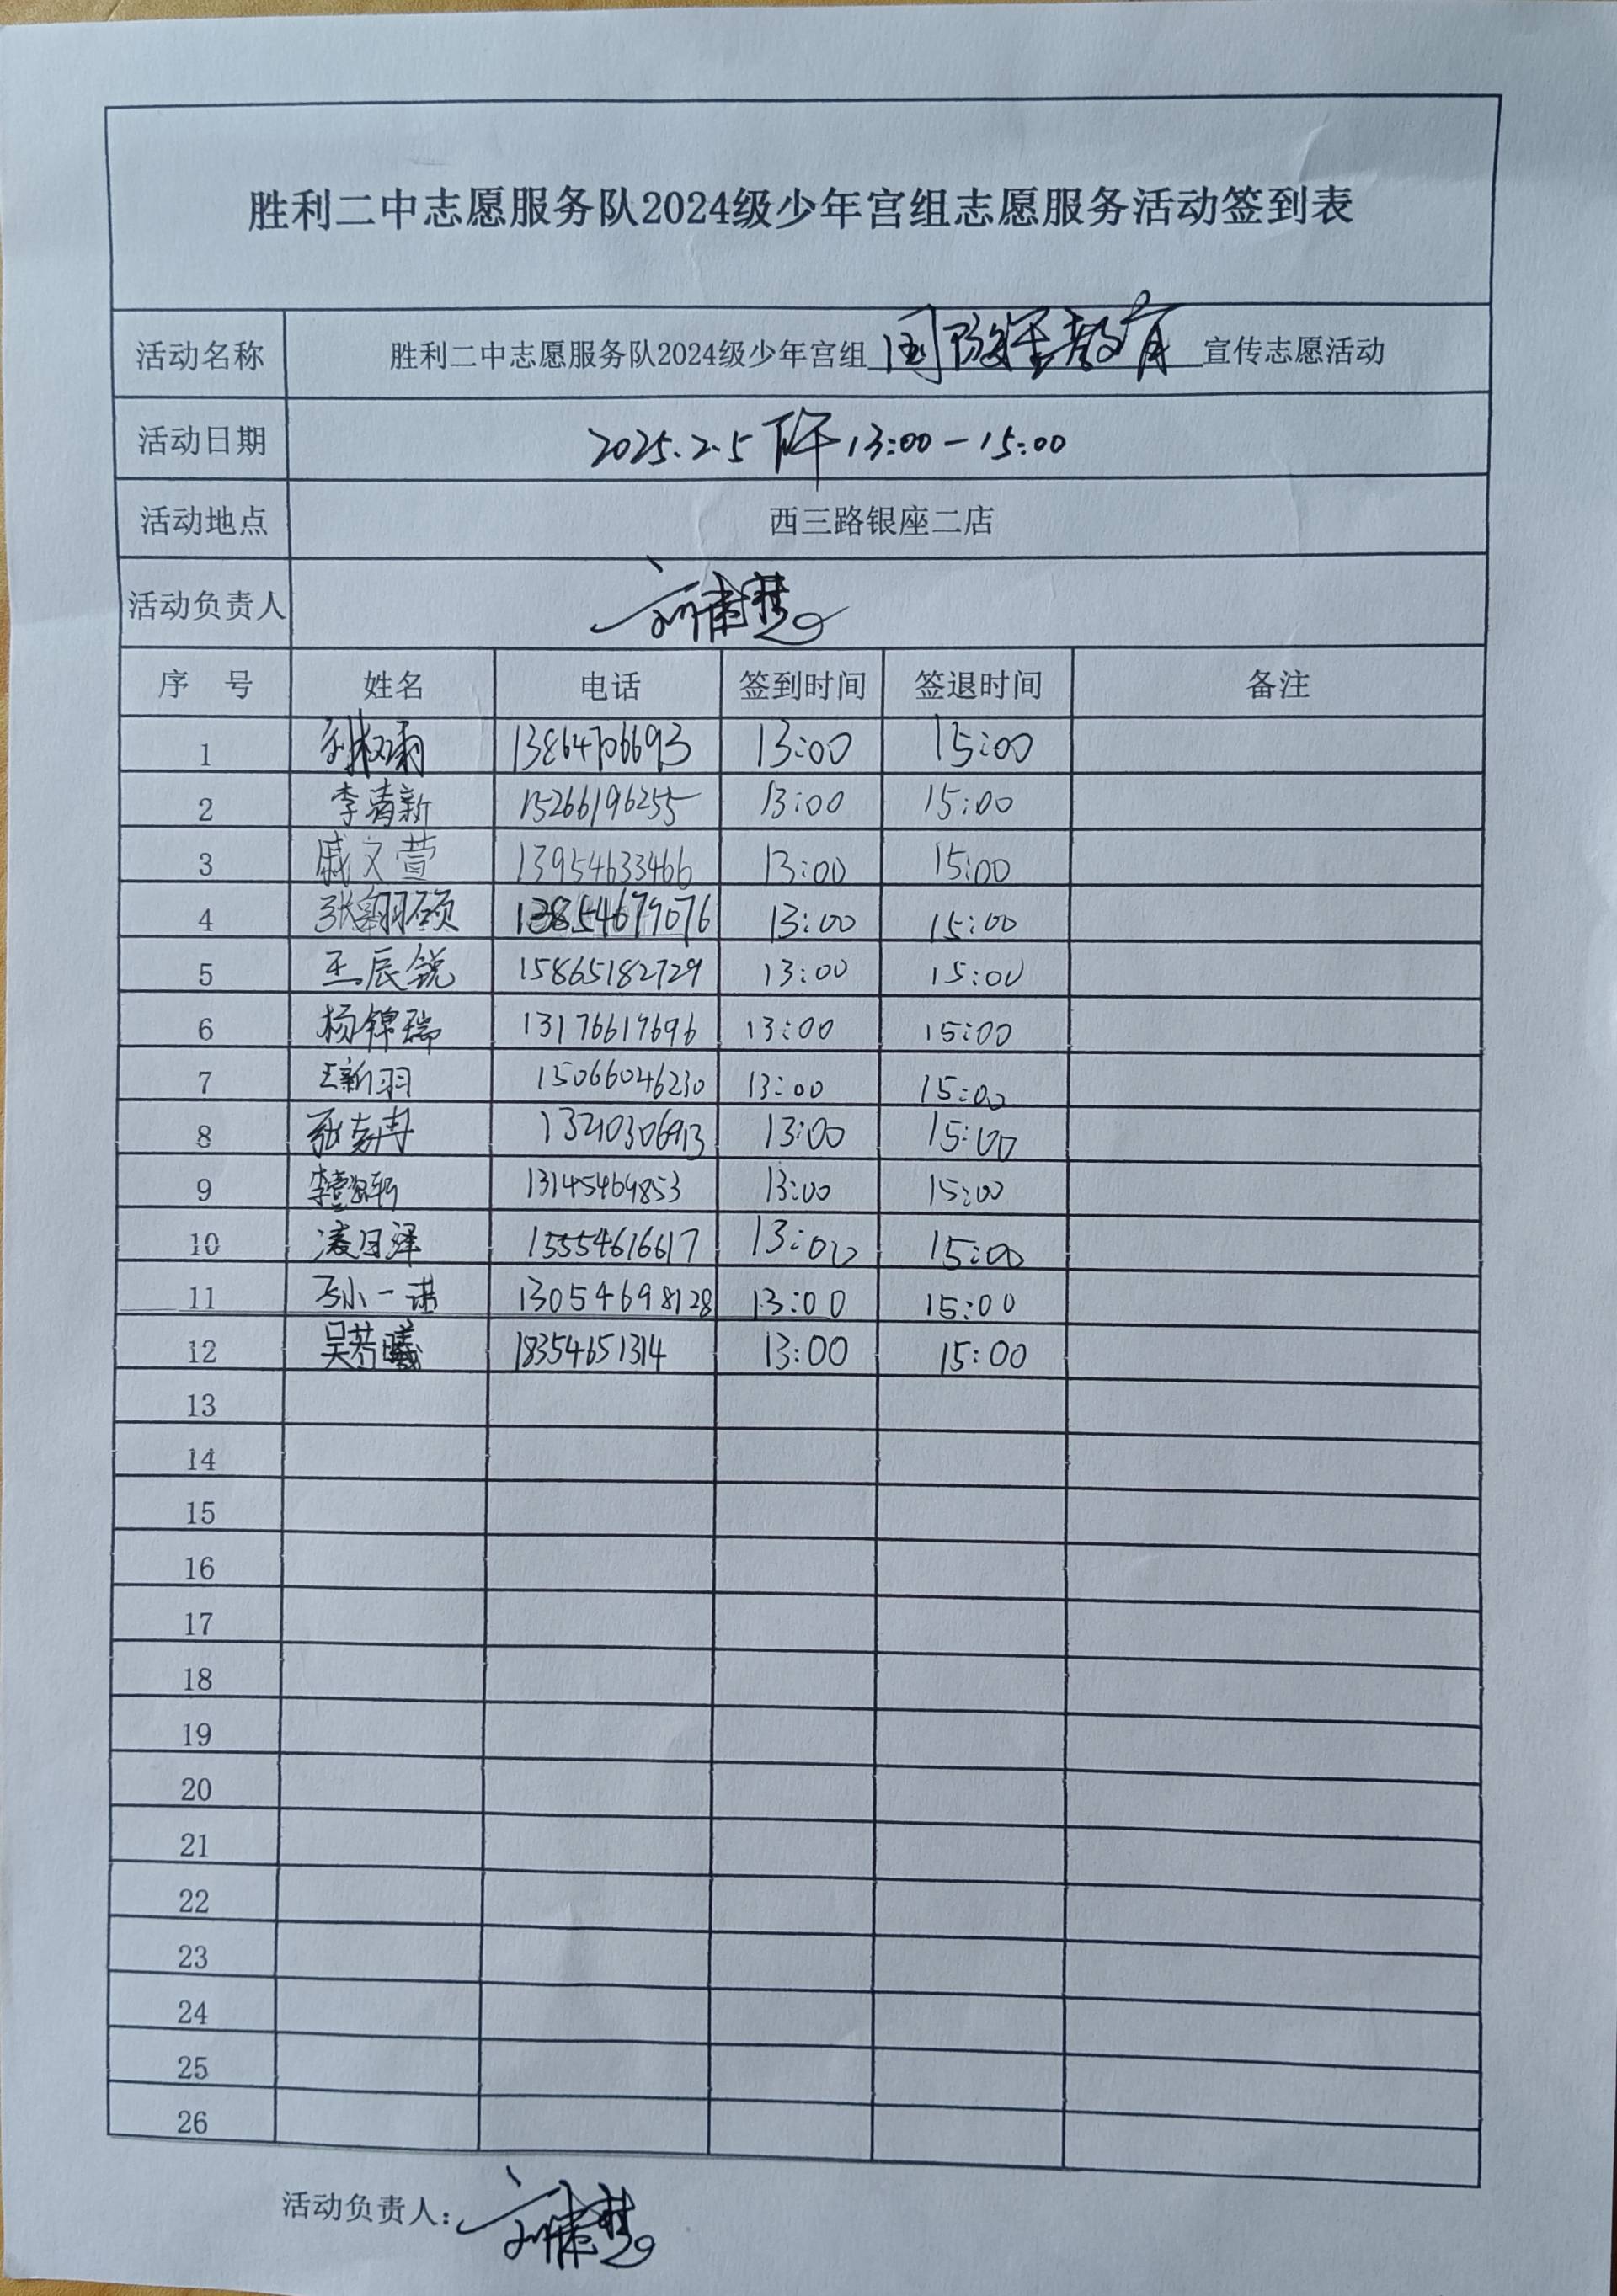 胜利二中志愿服务队2024级少年宫组志愿服务活动签到表
活动名称 胜利二中志愿服务队2024级少年宫组国防军教育宣传志愿活动
活动日期 2025.2.5 下午 13:00-15:00
活动地点 西三路银座二店
活动负责人
序号 姓名 电话 签到时间 签退时间 备注
1 13864706693 13:00 15:00
2 李清新 15266196255 13:00 15:00
3 戚文萱 13954633466 13:00 15:00
4 张翩硕 13854679076 13:00 15:00
5 王辰锐 15865182729 13:00 15:00
6 杨锦瑞 13176617696 13:00 15:00
7 王新羽 15066046230 13:00 15:00
8 13:00 15:00
9 13145469853 13:00 15:00
10 凌日泽 15554616617 13:00 15:00
11 孙一诺 13054698128 13:00 15:00
12 吴若曦 18354651314 13:00 15:00
13
14
15
16
17
18
19
20
21
22
23
24
25
26
活动负责人: